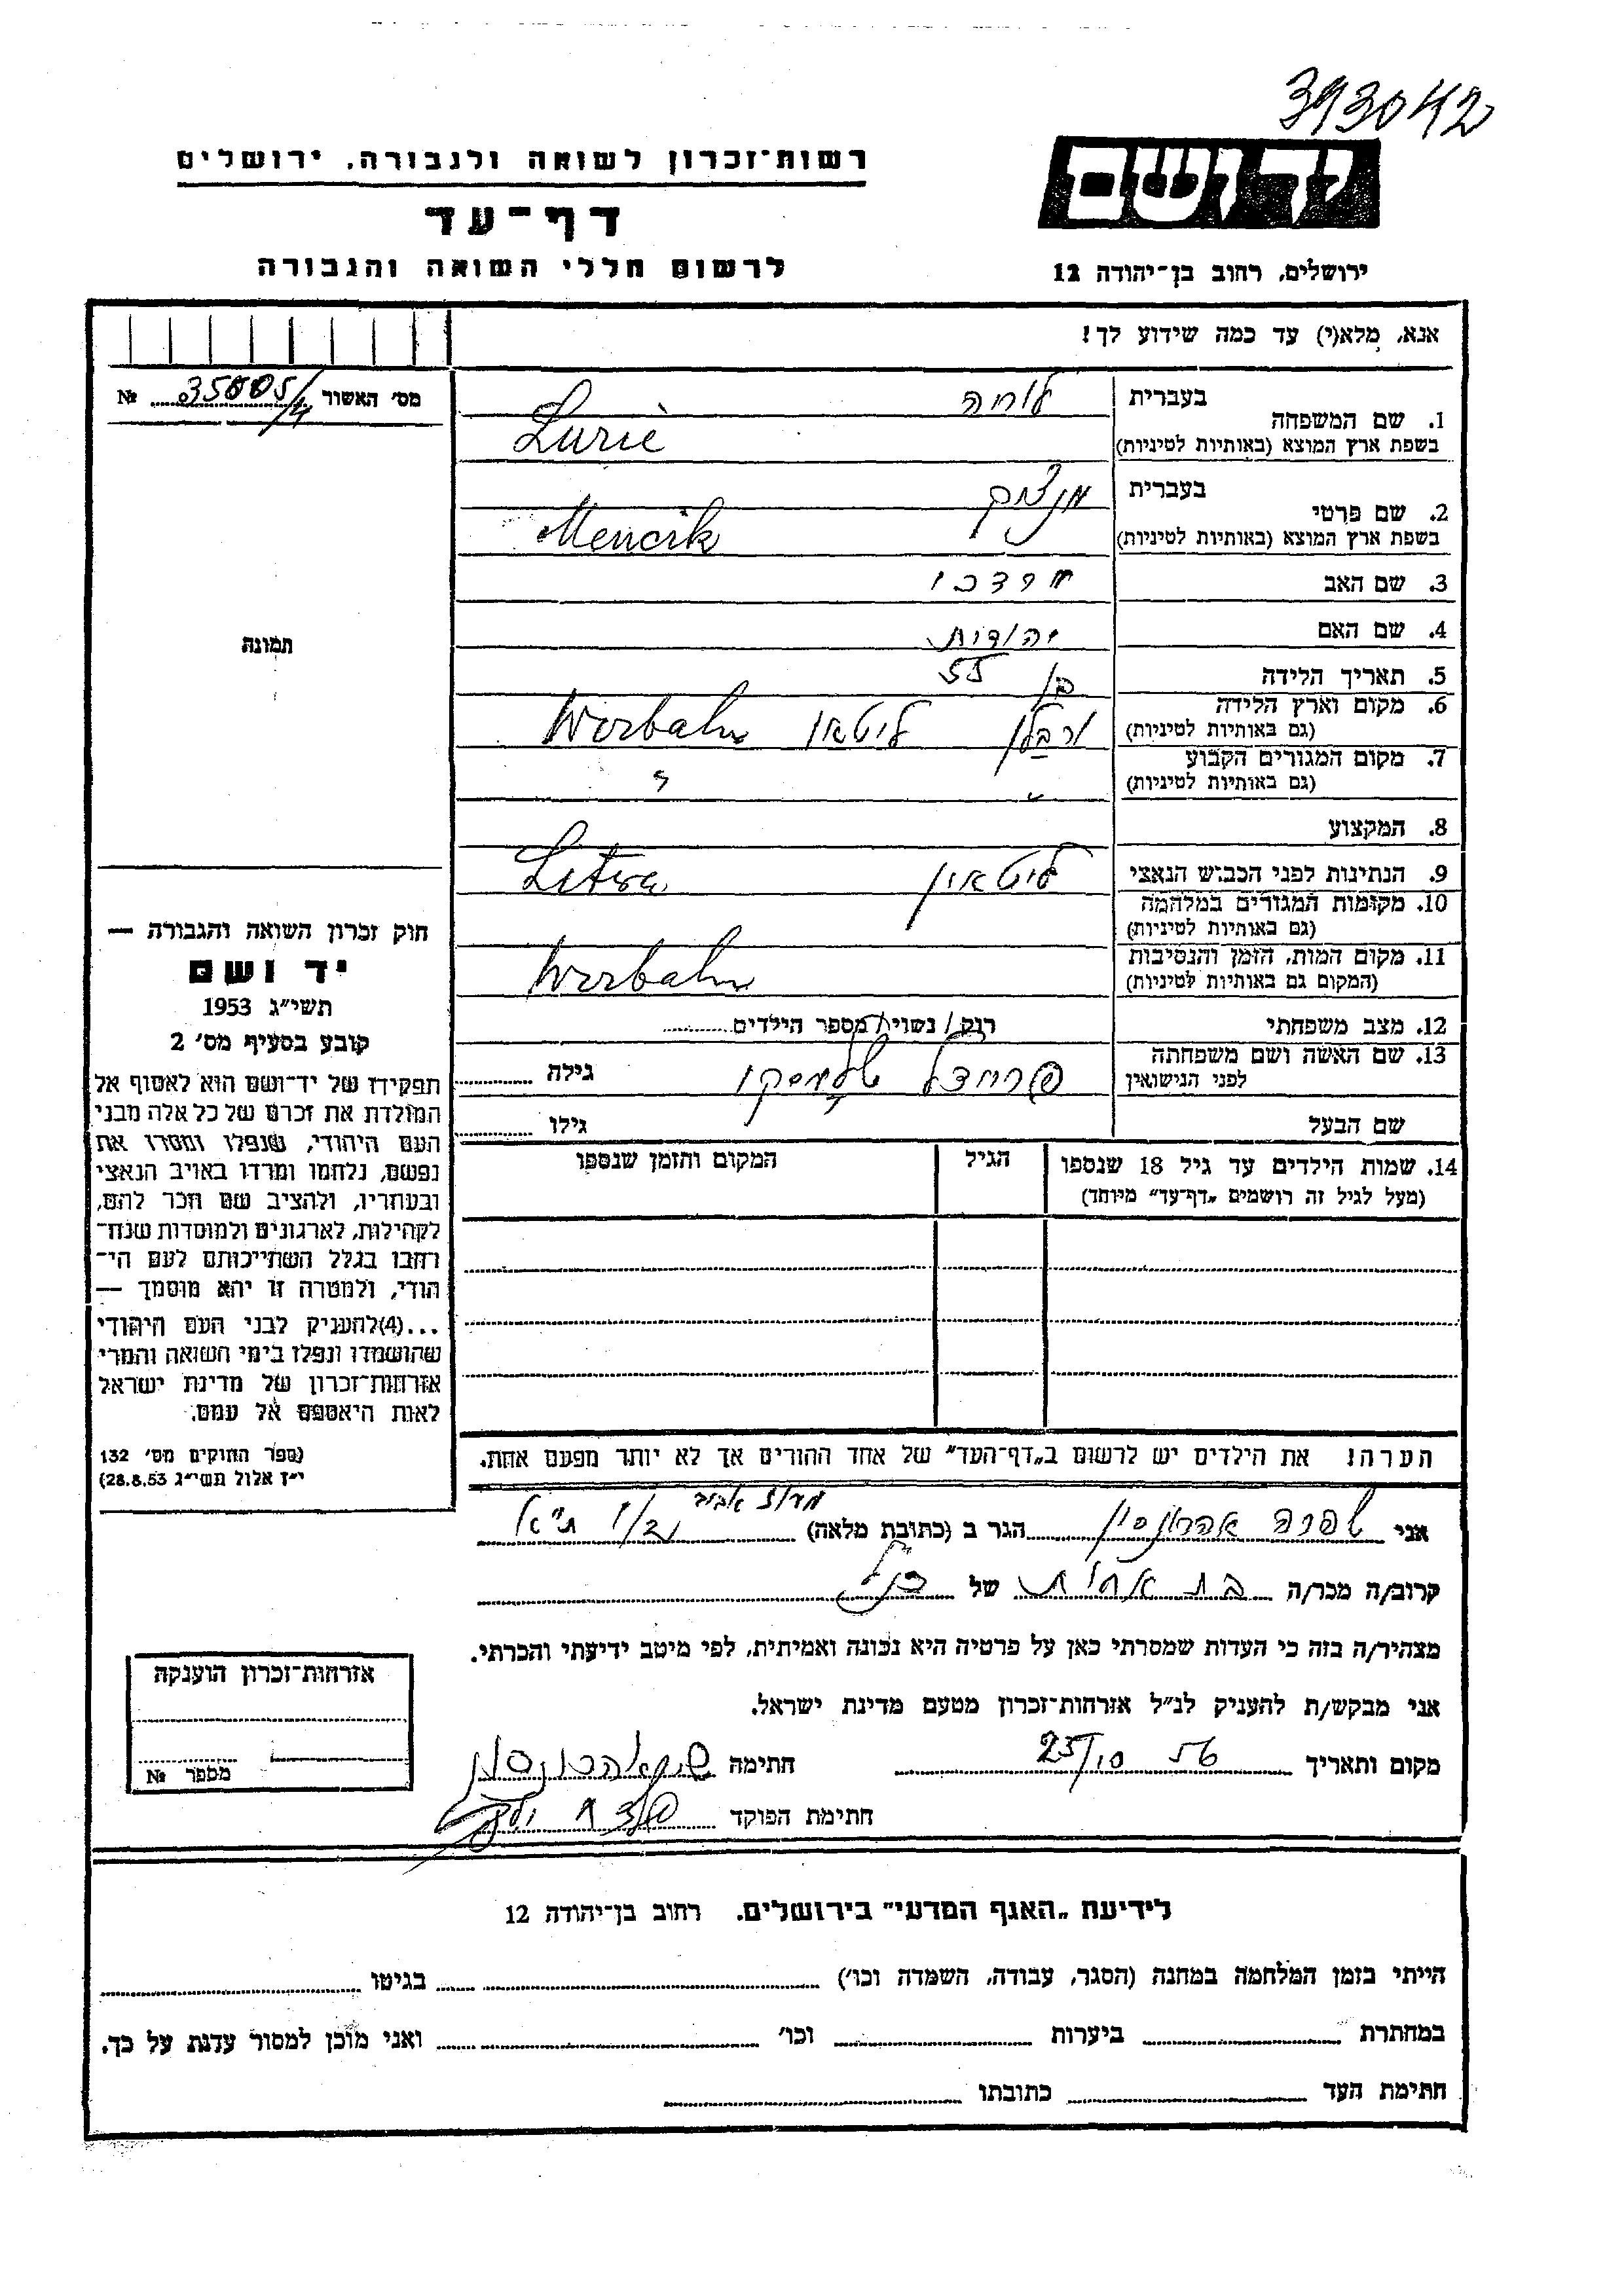 393042
יד ושם
ירושלים, רחוב בן־יהודה 12
רשות־זכרון לשואה ולגבורה, ירושלים
דף־עד
לרשום חללי השואה והגבורה
אנא, מלא(י) עד כמה שידוע לך!
מס' האשור 35005/4 №
תמונה
1. שם המשפחה
בעברית
בשפת ארץ המוצא (באותיות לטיניות) Lurie
2. שם פרטי
בעברית מנציק
בשפת ארץ המוצא (באותיות לטיניות) Mencik
3. שם האב מרדכי
4. שם האם יהודית
5. תאריך הלידה בן 55
6. מקום וארץ הלידה
(גם באותיות לטיניות) ורבלן ליטאין Worbaln
7. מקום המגורים הקבוע
(גם באותיות לטיניות) "
8. המקצוע
9. הנתינות לפני הכבוש הנאצי ליטאין Letwa
10. מקומות המגורים במלחמה
(גם באותיות לטיניות)
11. מקום המות, הזמן והנסיבות
(המקום גם באותיות לטיניות) Worbaln
12. מצב משפחתי רוק / נשוי / מספר הילדים
13. שם האשה ושם משפחתה
לפני הנישואין גילה
שם הבעל גילו
14. שמות הילדים עד גיל 18 שנספו הגיל המקום והזמן שנספו
(מעל לגיל זה רושמים „דף־עד" מיוחד)
הערה! את הילדים יש לרשום ב„דף־העד" של אחד ההורים אך לא יותר מפעם אחת.
חוק זכרון השואה והגבורה —
יד ושם
תשי"ג 1953
קובע בסעיף מס' 2
תפקידו של יד־ושם הוא לאסוף אל
המולדת את זכרם של כל אלה מבני
העם היהודי, שנפלו ומסרו את
נפשם, נלחמו ומרדו באויב הנאצי
ובעוזריו, ולהציב שם וזכר להם,
לקהילות, לארגונים ולמוסדות שנח־
רבו בגלל השתייכותם לעם הי־
הודי, ולמטרה זו יהא מוסמך —
...(4)להעניק לבני העם היהודי
שהושמדו ונפלו בימי השואה והמרי
אזרחות־זכרון של מדינת ישראל
לאות היאספם אל עמם.
(ספר החוקים מס' 132
י"ז אלול תשי"ג 28.8.53)
אני שפרה אהרונסון הגר ב (כתובת מלאה) ת"א
קרוב/ה מכר/ה בת אחות של כנ"ל
מצהיר/ה בזה כי העדות שמסרתי כאן על פרטיה היא נכונה ואמיתית, לפי מיטב ידיעתי והכרתי.
אני מבקש/ת להעניק לנ"ל אזרחות־זכרון מטעם מדינת ישראל.
מקום ותאריך 25/10 56 חתימה ש. אהרונסון
חתימת הפוקד
אזרחות־זכרון הוענקה
מספר №
לידיעת „האגף המדעי" בירושלים, רחוב בן־יהודה 12
הייתי בזמן המלחמה במחנה (הסגר, עבודה, השמדה וכו') בגיטו
במחתרת ביערות וכו' ואני מוכן למסור עדות על כך.
חתימת העד כתובתו